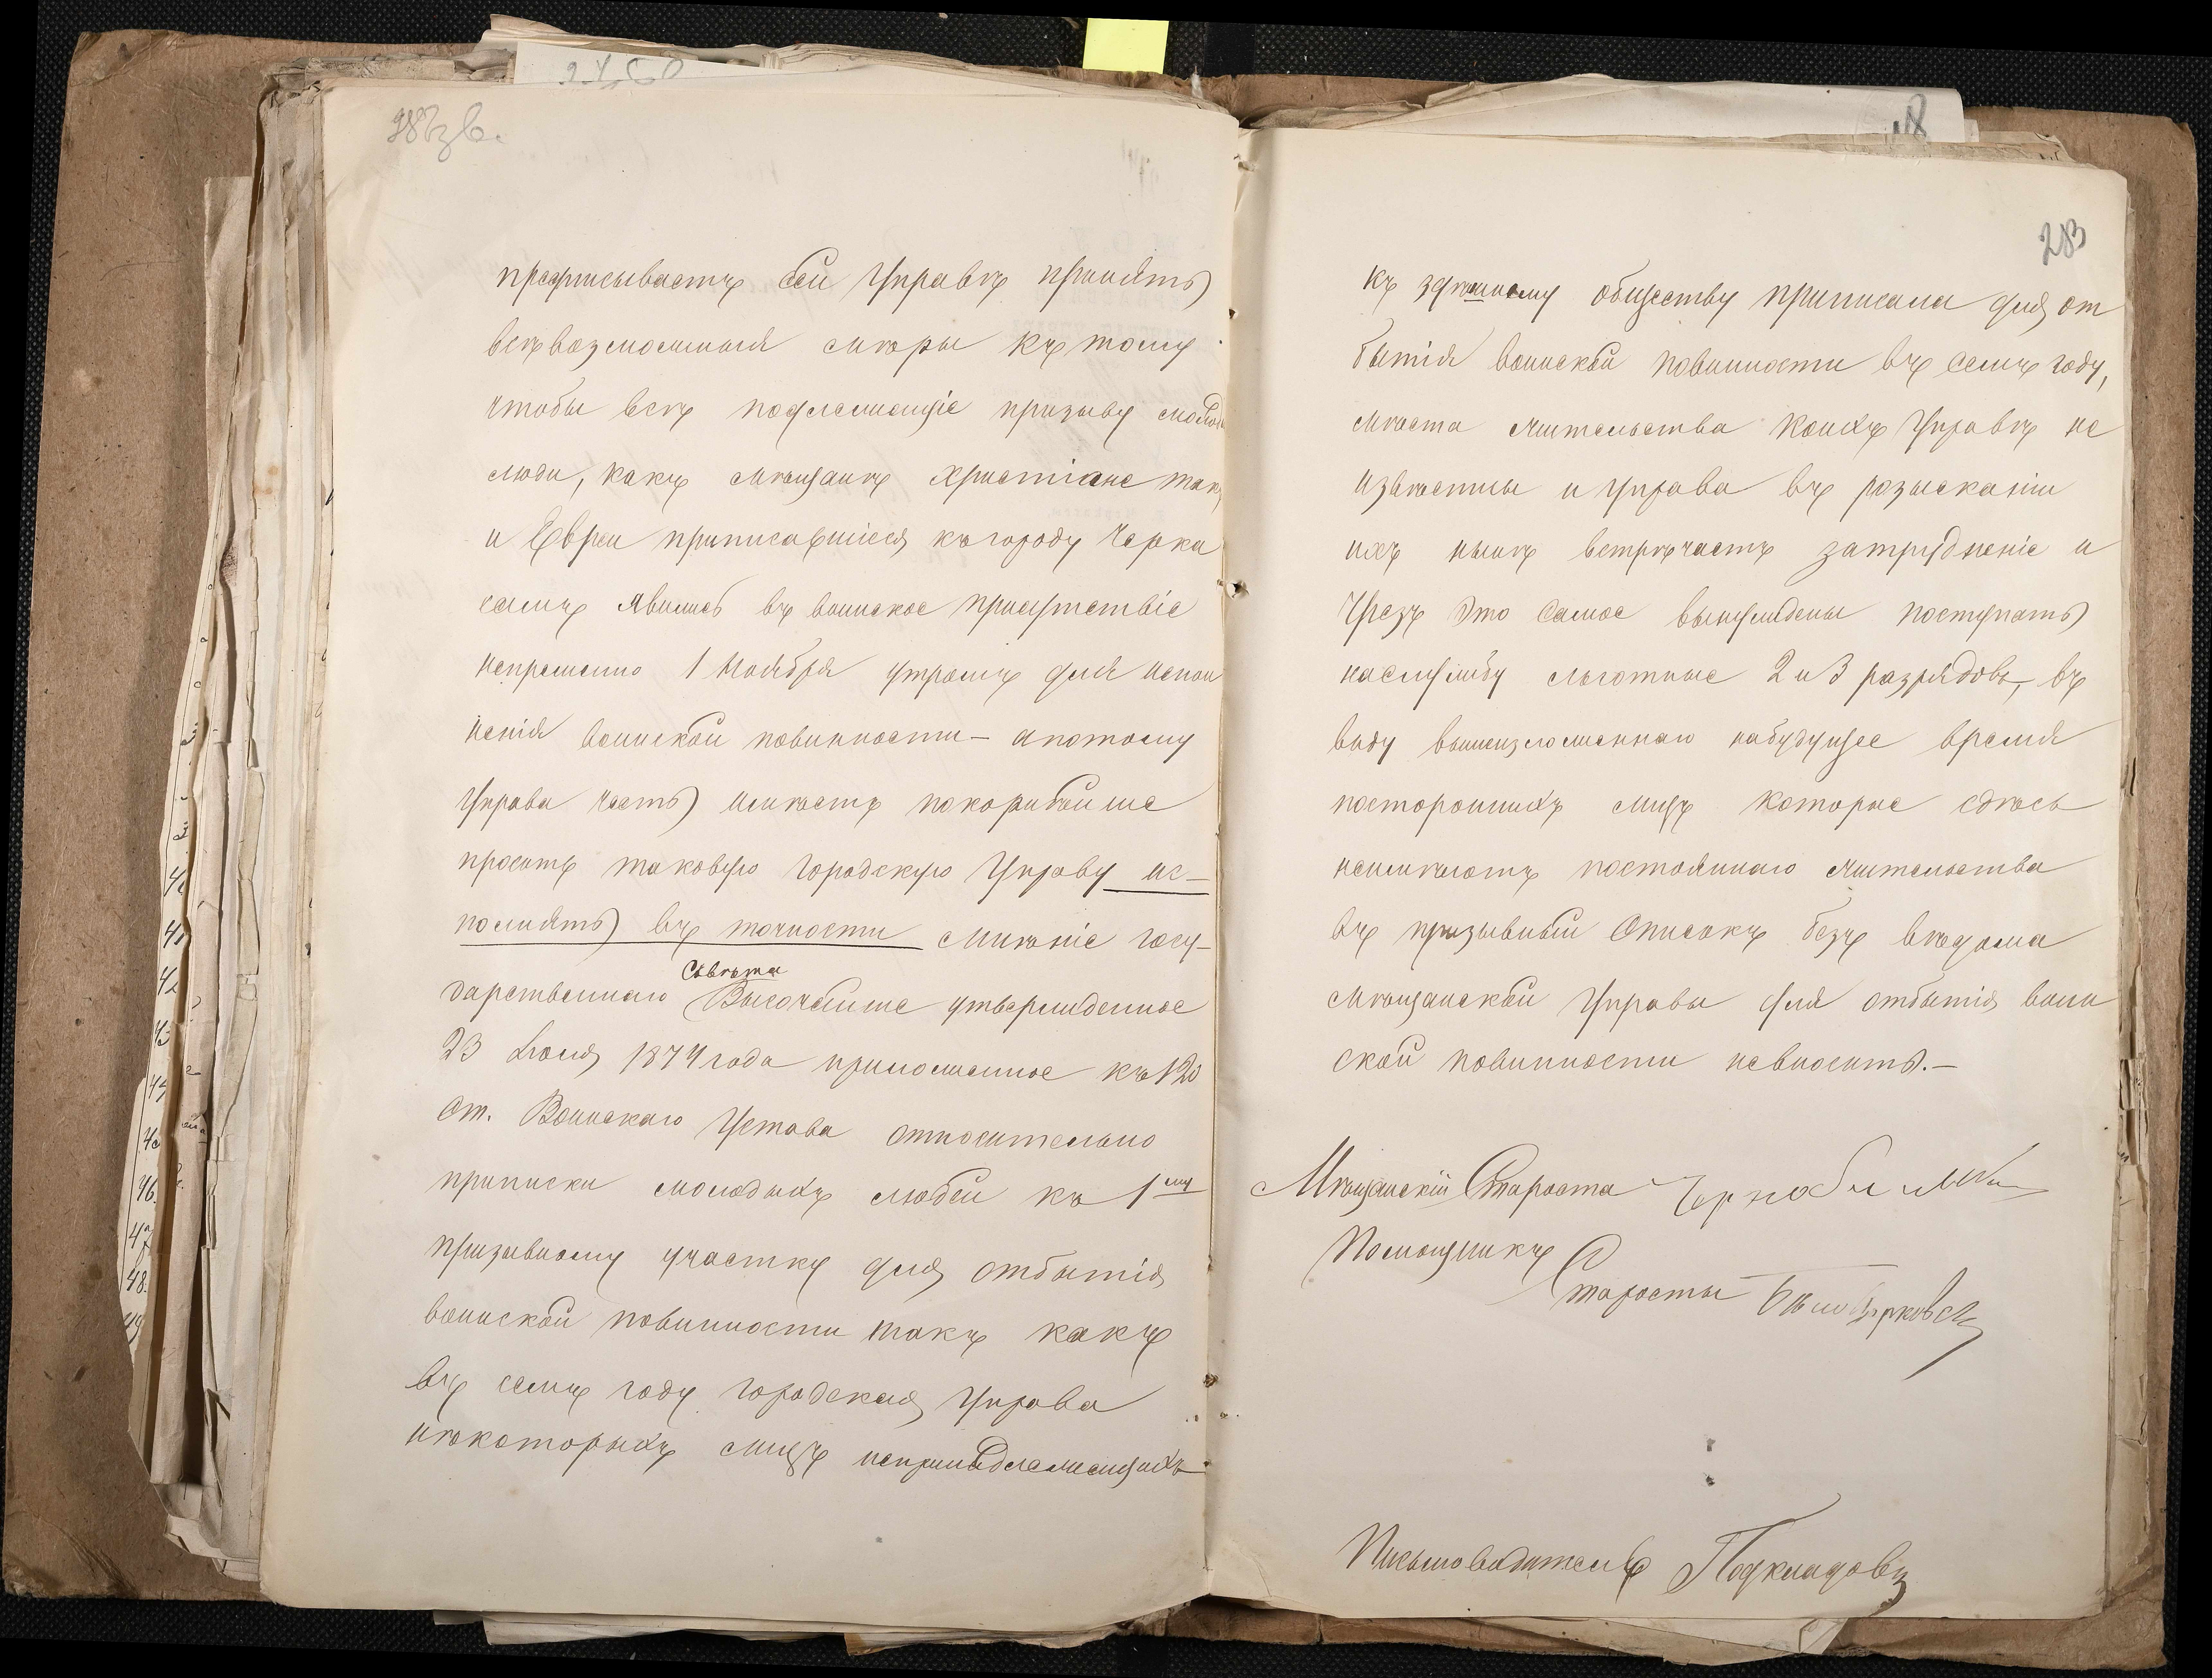 предписываетъ сей Управѣ принять
всѣвозможныя мѣры къ тому
чтобы всѣ подлежащіе призыву молод
люди, какъ мѣщанѣ христіане такъ
и Евреи приписавшіеся къ городу Черка
самъ явились въ воинское присутствіе
непременно 1 Ноября утромъ для испол
ненія воинской повинности – а потому
Управа честь имѣетъ покорнѣйше
просить таковую Городскую Управу ис–
полнять въ точности мнѣніе госу–
Совѣта
дарственнаго Высочайше утвержденное
23 Іюля 1874 года приложенное къ 120
ст. Воинскаго Устава относительно
приписки молодыхъ людей къ 1му
призывному участку для отбытія
воинской повинности такъ какъ
въ семъ году городская Управа
нѣкоторыхъ лицъ непринадлежащихъ
283
къ здѣшнему обществу приписала для от
бытія воинской повинности въ семъ году,
мѣста жительства коихъ Управѣ не
извѣстны и Управа въ розысканіи
ихъ нынѣ встрѣчаетъ затрудненіе и
чрезъ это самое вынуждены поступать
на службу льготные 2 и 3 разрядовъ, въ
виду вышеизложеннаго набудущее время
постороннихъ лицъ которые сдѣсь
неимѣютъ постояннаго жительства
въ призывный Списокъ безъ вѣдома
мѣщанской Управы для отбытія воин
ской повинности невносить.–
Мѣщанскій Староста
Помощникъ
Старосты
Письмоводитель Подкладовъ